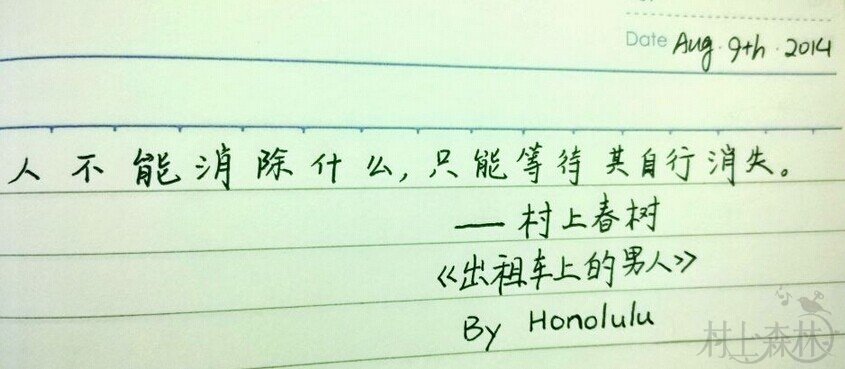 Date Aug. 9th. 2014
人不能消除什么,只能等待其自行消失。
——村上春树
《出租车上的男人》
By Honolulu
村上森林